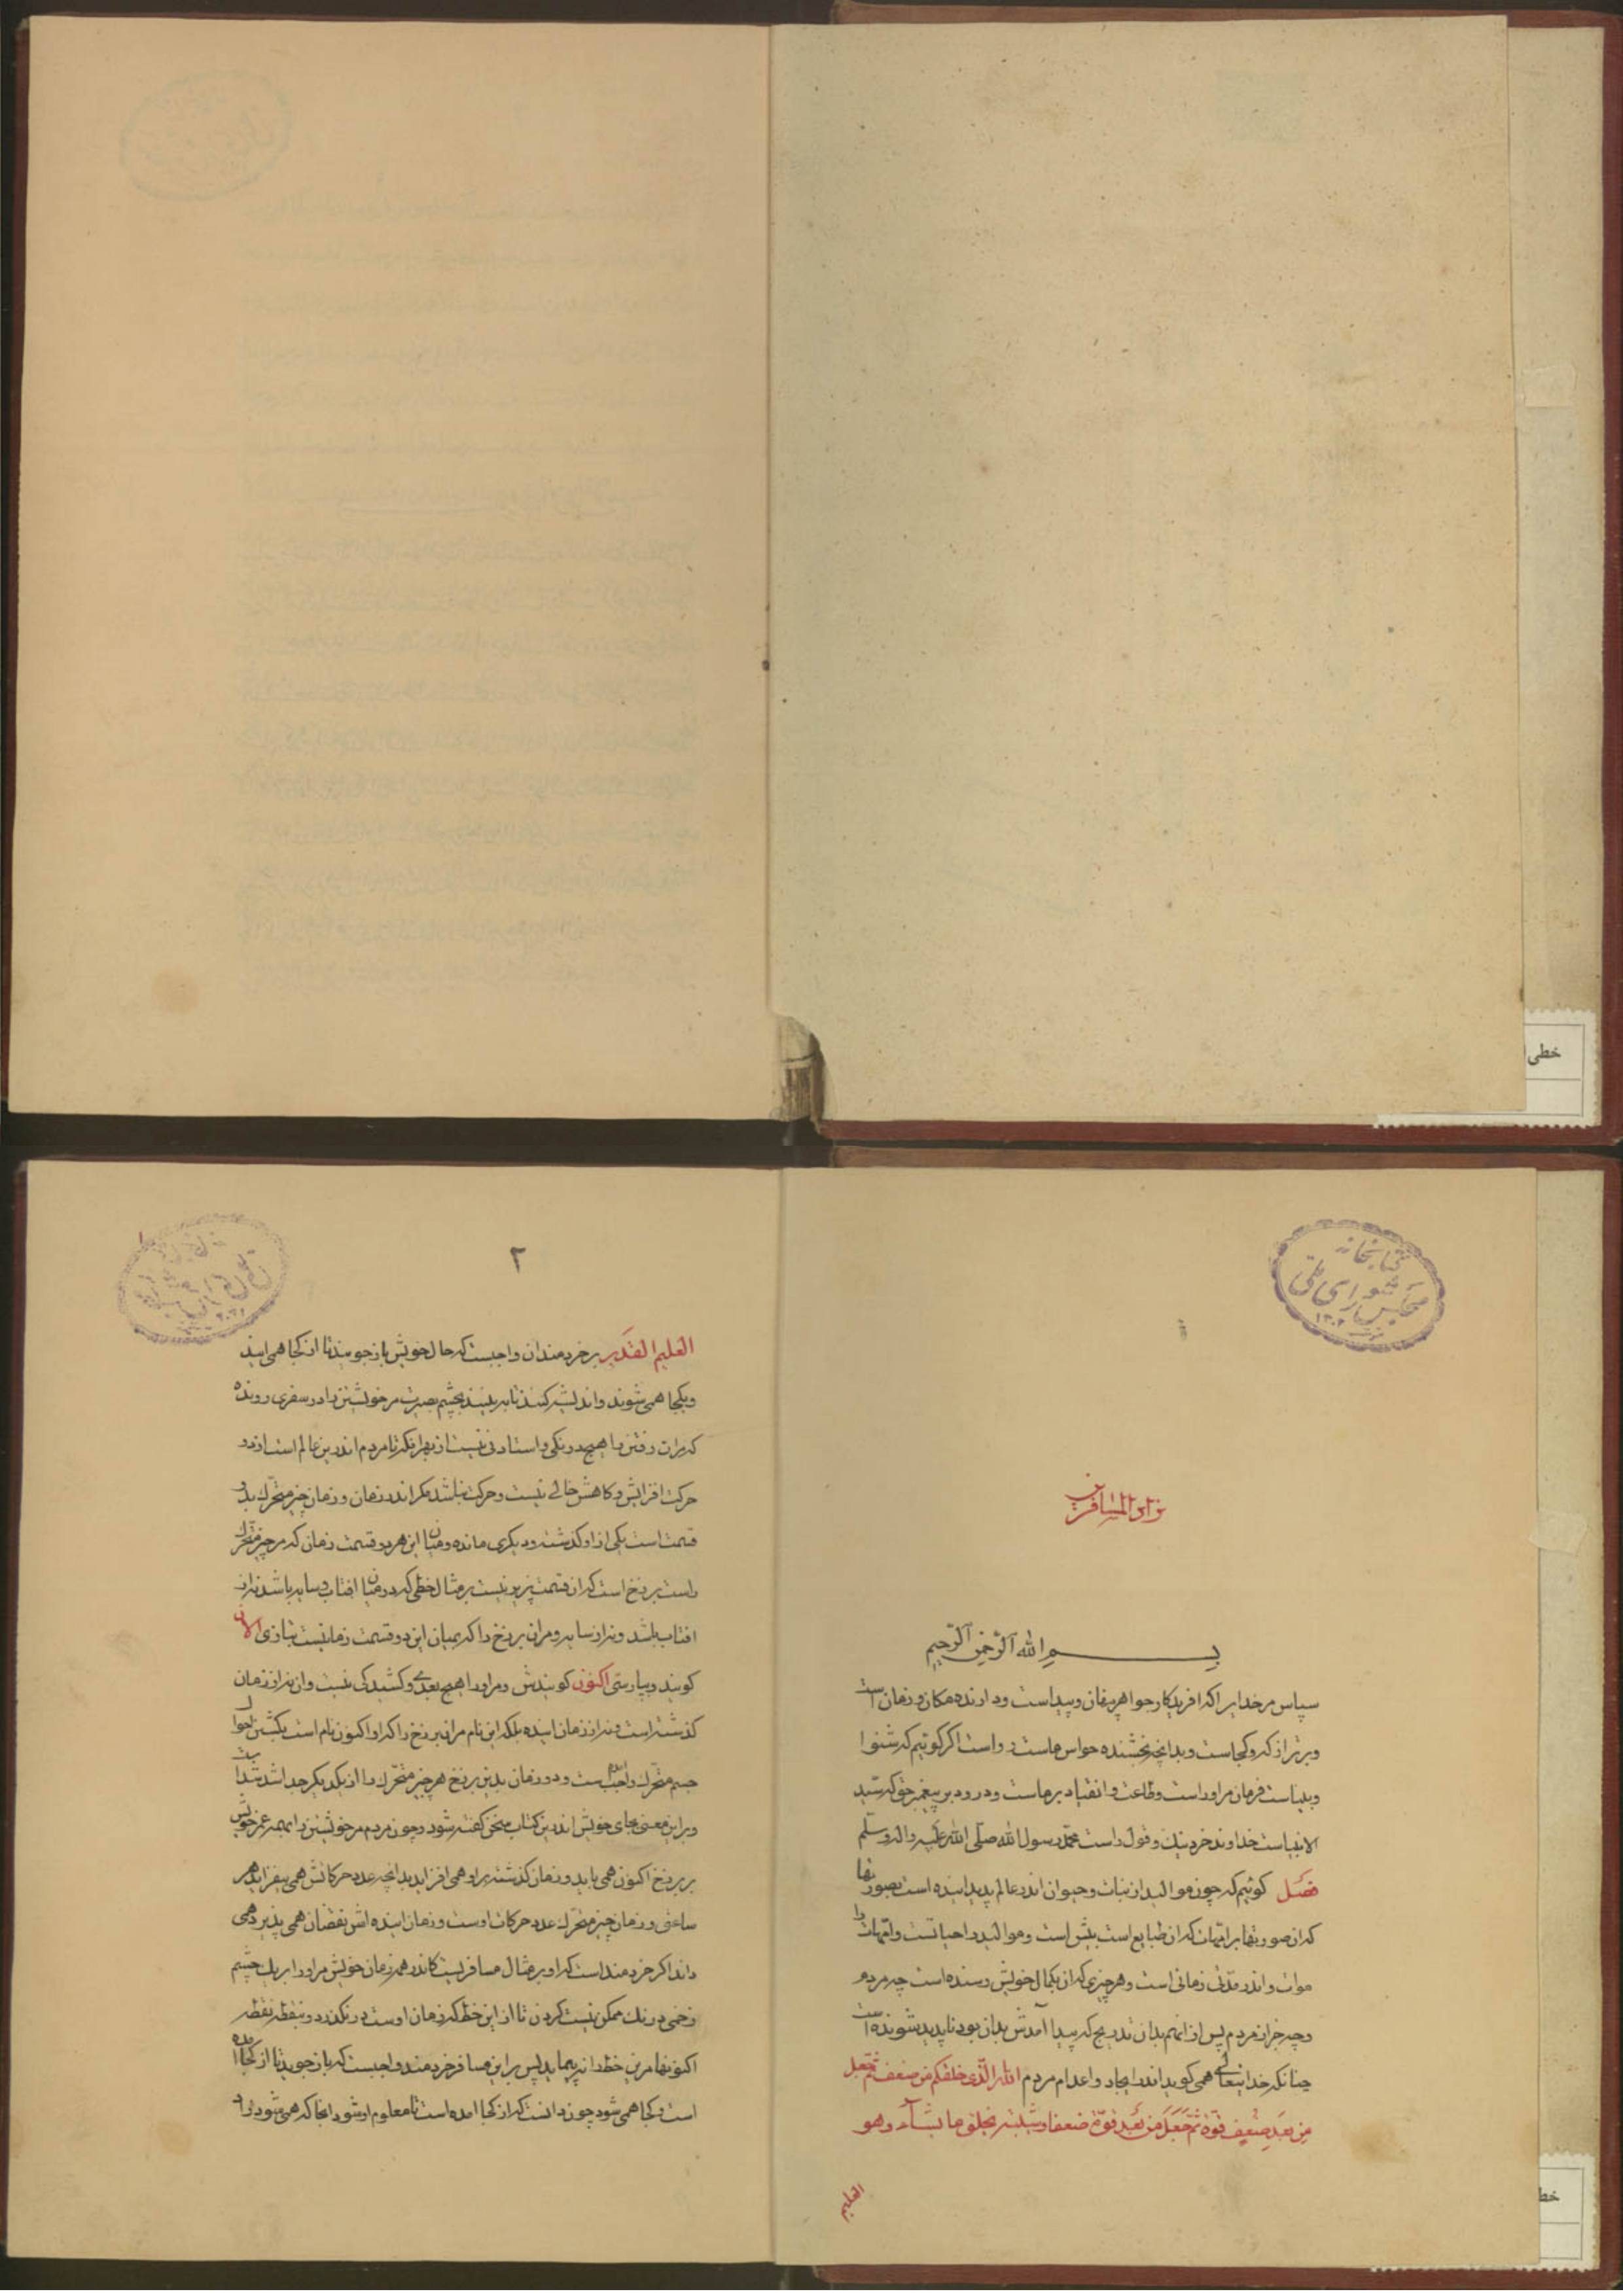 خطی
کتابخانه
مجلس شورای ملی
زاد المسافرین
بسم الله الرحمن الرحیم
سپاس مر خدایرا که افریدکار جواهر پنهان و پیداست و دارنده مکان و زمان است
و برتر از که و کجاست و بدانچه بخشنده حواس ماست رواست اکر کوئیم که شنوا
و بیناست فرمان مر اوراست و طاعت و انقیاد بر ماست و درود بر پیغمبر حق که سید
الانبیاست خداوند خرد نیک و قول راست محمد رسول الله صلی الله علیه واله وسلم
فصل کوئیم که چون موالید از نبات و حیوان اندر عالم پدید اینده است بصورتها
که ان صورتها بر امهات که ان طبایع است بیش است و موالید را حیاتست و امهات را
موات و اندر مدتی زمانی است و هر چیزی که ان بکمال خویش رسنده است چه مردم
و چه جز از مردم پس از تمام بدان تدریج که پیدا آمدش بدان بود ناپدید شونده است
چنانکه خدایتعالی همی کوید اندر ایجاد و اعدام مردم الله الذی خلقکم من ضعف ثم جعل
من بعد ضعف قوة ثم جعل من بعد قوة ضعفا وشیبته یخلق ما یشآء وهو
العلیم
خط
۲
العلیم القدیر بر خردمندان واجبست که حال خویش باز جویند تا از کجا همی ایند
و بکجا همی شوند و اندیشه کنند تا به بینند بچشم بصیرت مر خویشتن را در سفری رونده
که مران رفتن را هیچ درنکی و استادنی نیست از بهر انکه تا مردم اندرین عالم است از دو
حرکت افزایش و کاهش خالی نیست و حرکت نباشد مکر اندر زمان و زمان چیز متحرک بدو
قسمت است یکی از او کذشته و دیکری مانده و میان این هر دو قسمت زمان که مر چیز متحرک
راست برزخ است که ان قسمت پذیر نیست بر مثال خطی که در میان افتاب و سایه باشد نه از
افتاب باشد و نه از سایه و مران برزخ را که بمیان این دو قسمت زمانیست بتازی الان
کویند و بپارسی اکنون کویندش و مر او را هیچ بعدی و کشیدکی نیست و ان نه از زمان
کذشته است و نه از زمان اینده بلکه این نام مران برزخ را که او اکنون نام است بکشتن احوال
جسم متحرک واجب امده است و دو زمان بدین برزخ هر چیز متحرک را از یکدیکر جدا شدست
و بر این معنی بجای خویش اندرین کتاب سخن کفته شود و چون مردم مر خویشتن را همه عمر خویش
بر برزخ اکنون همی یابد و زمان کذشته بر او همی افزاید بدانچه عدد حرکاتش همی بیفزاید هر
ساعتی و زمان چیز متحرک عدد حرکات اوست و زمان اینده اش نقصان همی پذیرد همی
داند اکر خردمند است که او بر مثال مسافریست کاندر همه زمان خویش مر اورا بر یک چشم
زخمی درنک ممکن نیست کردن تا از این خط که زمان اوست در نکذرد و بنقطه نقطه
اکنونها مرین خط را نه پیماید پس بر این مسافر خردمند واجبست که باز جوید تا از کجا امده
است و بکجا همی شود چون دانست که از کجا امده است تا معلوم او شود انجا که همی شود